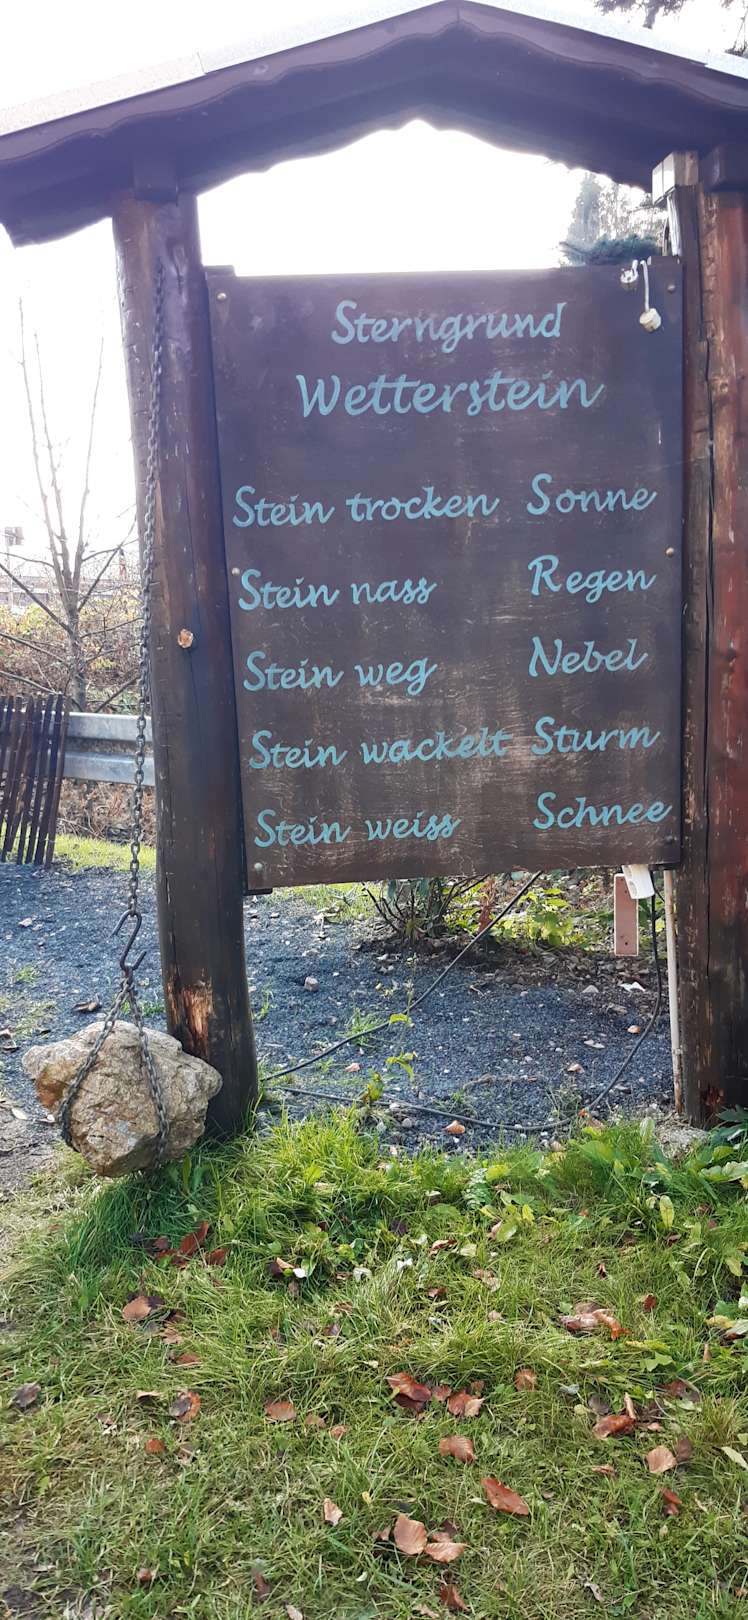 Sterngrund
Wetterstein
Stein trocken Sonne
Stein nass Regen
Stein weg Nebel
Stein wackelt Sturm
Stein weiss Schnee